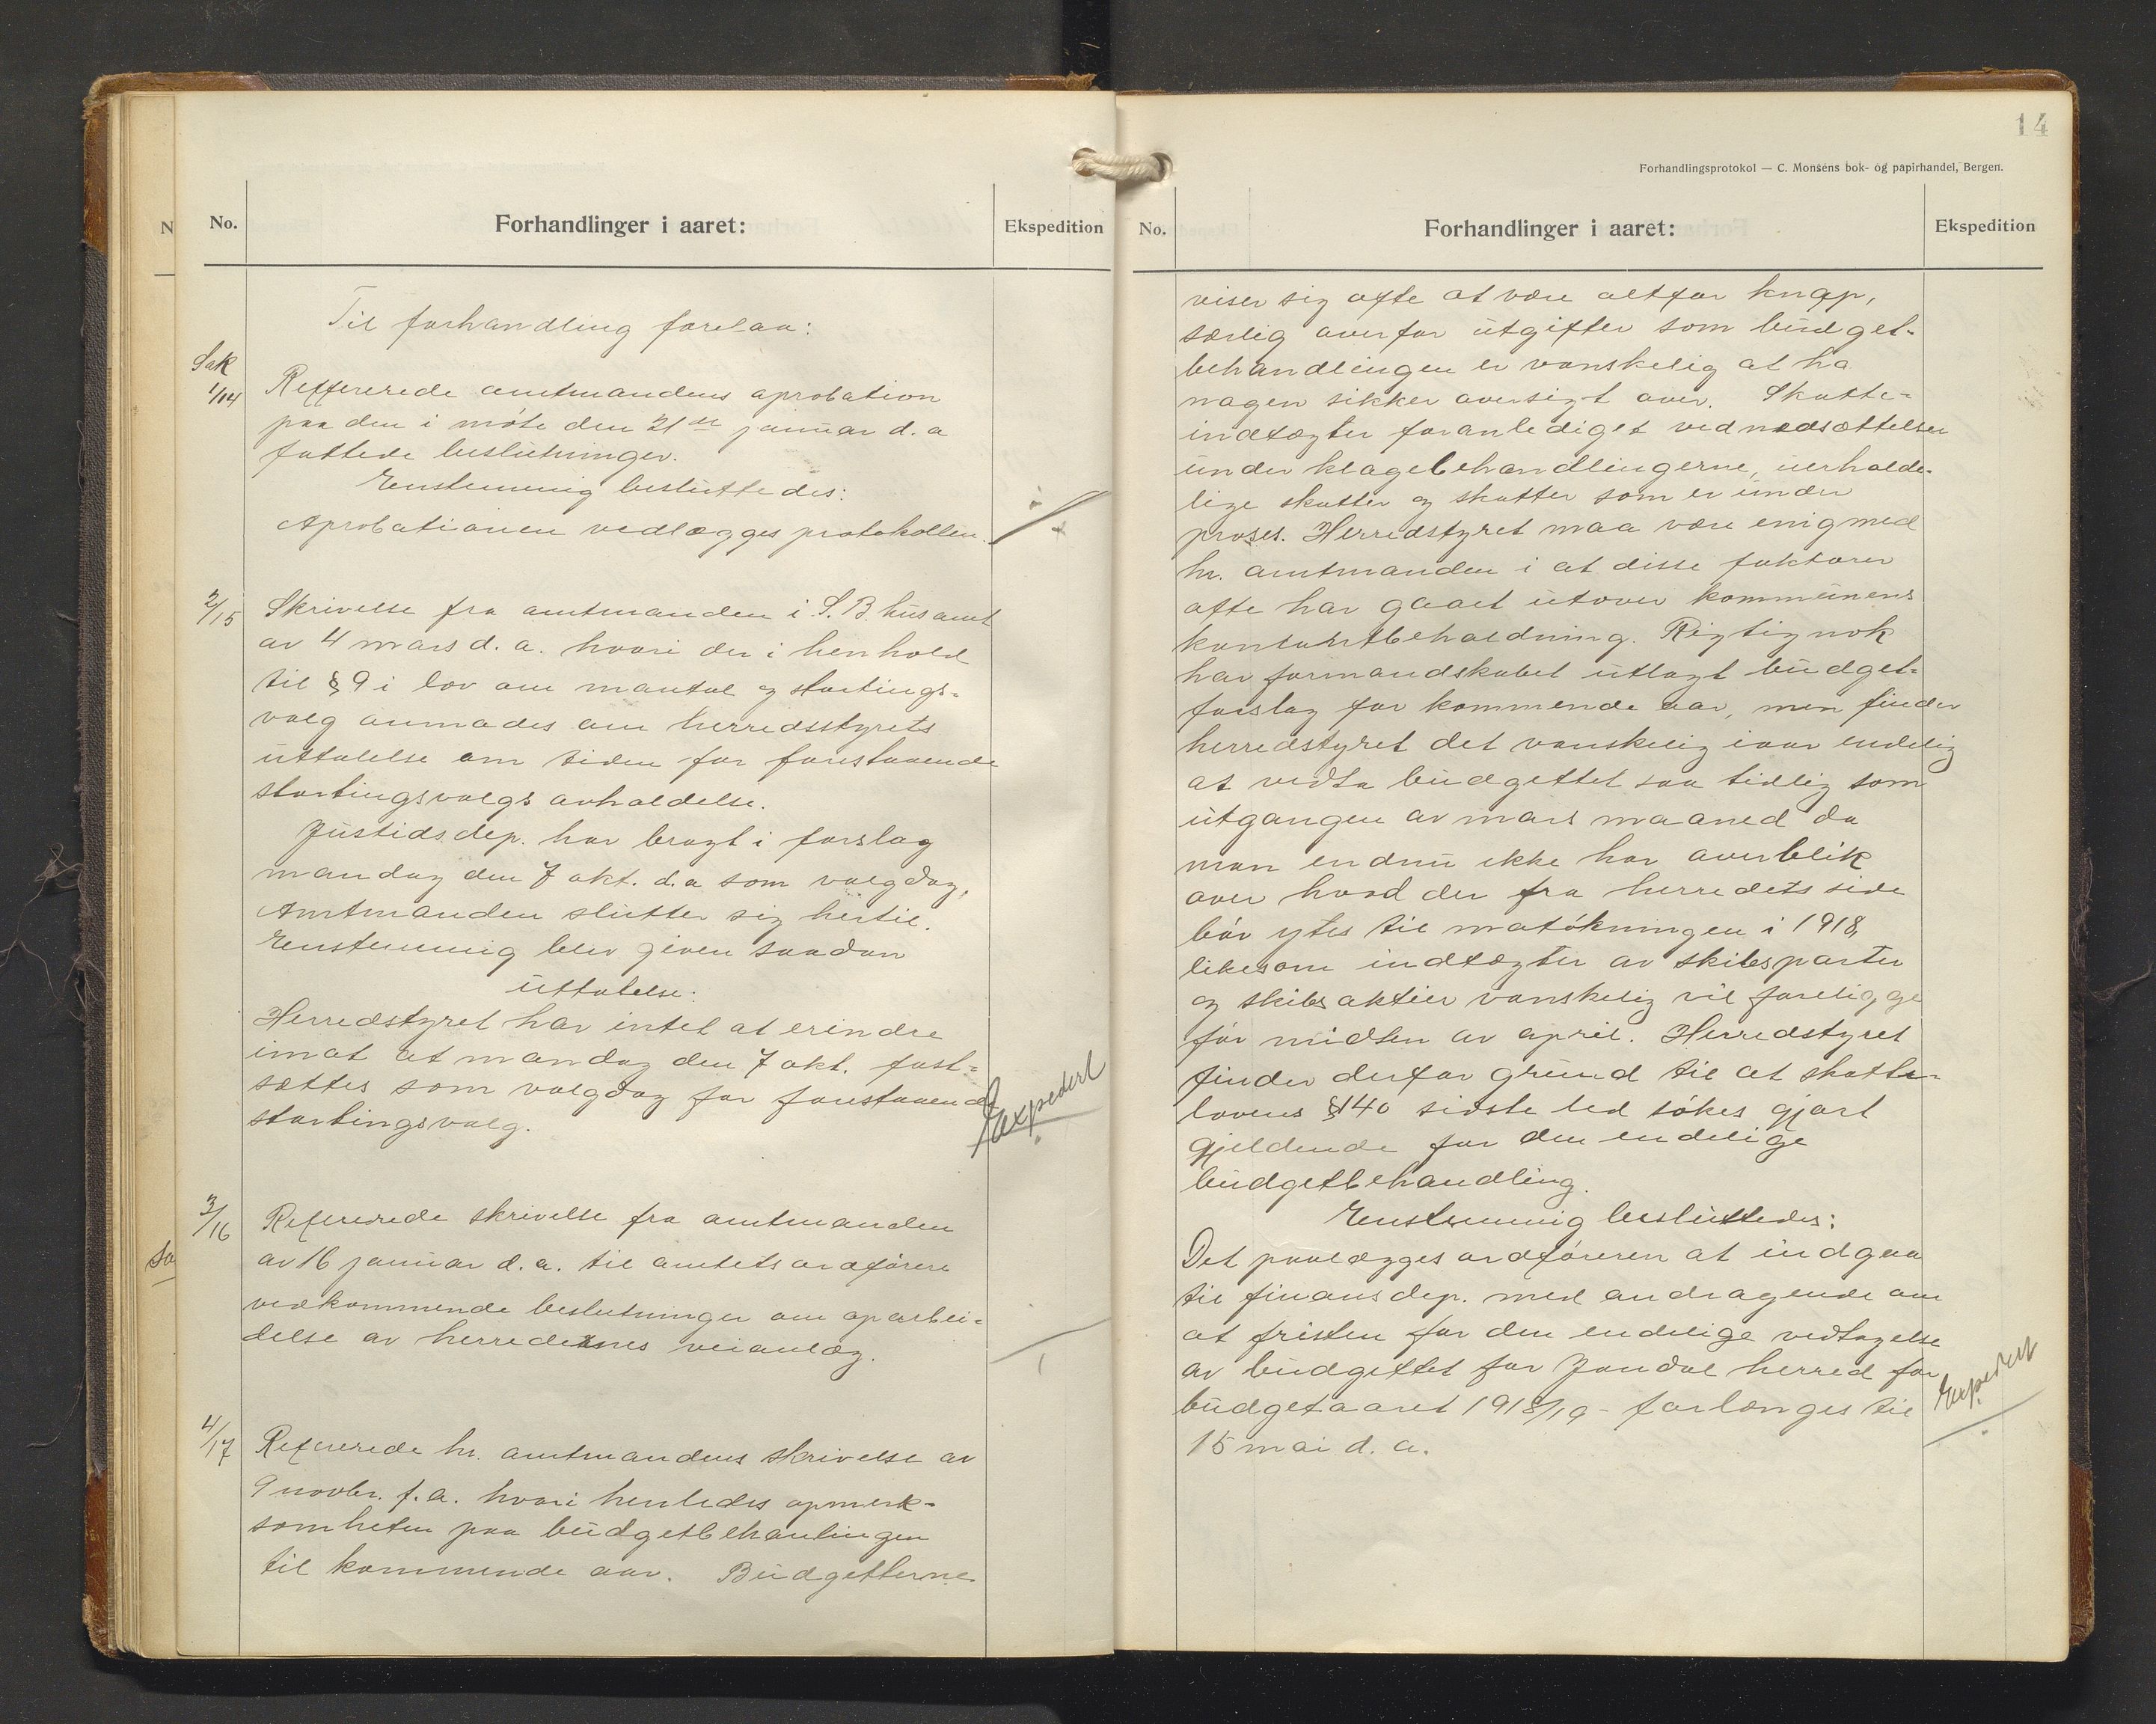 No.
Forhandlinger i aaret:
Ekspedition
Til forhandling forelaa:
Sak
1/14
Reffererede amtmandens aprobation
paa den i møte den 21de januar d. a
fattede beslutninger.
Enstemmig besluttedes:
Aprobationen vedlægges protokollen.
2/15
Skrivelse fra amtmanden i S. B. hus amt
av 4 mars d. a. hvori der i henhold
til § 9 i lov om mantal og stortings-
valg anmodes om herredsstyrets
uttalelse om tiden for forestaaende
stortingsvalgs avholdelse.
Justidsdep. har bragt i forslag
mandag den 7 okt. d. a som valgdag,
Amtmanden slutter sig hertil.
Enstemmig blev given saadan
uttalelse:
Herredstyret har intet at erindre
imot at mandag den 7 okt. fast-
sættes som valgdag for forestaaende
stortingsvalg.
Expedert
3/16
Refererede skrivelse fra amtmanden
av 16 januar d. a. til amtets ordførere
vedkommende beslutninger om oparbei-
delse av herredernes veianlæg.
4/17
Refererede hr. amtmandens skrivelse av
9 novbr. f. a. hvori henledes opmerk-
somheten paa budgetbehanlingen
til kommende aar. Budgetterne
So
N
14
Forhandlingsprotokol — C. Monsens bok- og papirhandel, Bergen.
No.
Forhandlinger i aaret:
Ekspedition
viser sig ofte at være altfor knap,
særlig overfor utgifter som budget-
behandlingen er vanskelig at ha
nogen sikker oversigt over. Skatte-
indtægter foranlediget ved nedsættelser
under klagebehandlingerne, uerholde-
lige skatter og skatter som er under
proses. Herredstyret maa være enig med
hr. amtmanden i at disse faktorer
ofte har gaaet utover kommunens
kontantbeholdning. Rigtignok
har formandskabet utlagt budget-
forslag for kommende aar, men finder
herredstyret det vanskelig iaar endelig
at vedta budgettet saa tidlig som
utgangen av mars maaned da
man endnu ikke har overblik
over hvad der fra herredets side
bør ytes til matøkningen i 1918,
likesom indtægter av skibsparter
og skibsaktier vanskelig vil foreligge
før midten av april. Herredstyret
finder derfor grund til at skatte-
lovens §140 sidste led søkes gjort
gjeldende for den endelige
budgetbehandling.
Enstemmig besluttedes:
Det paalægges ordføreren at indgaa
til finansdep. med andragende om
at fristen for den endelige vedtagelse
av budgettet for Jondal herred for
budgetaaret 1918/19 - forlænges til
15 mai d. a.
Expedert